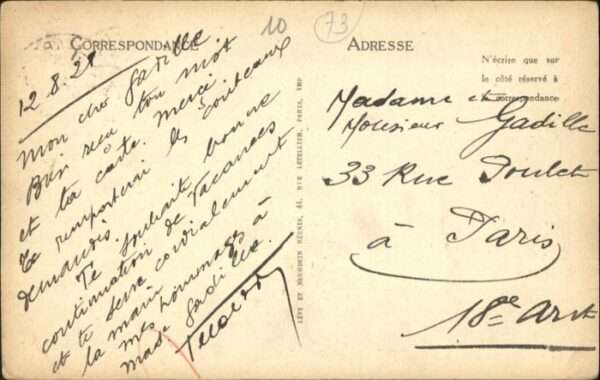 CORRESPONDANCE
12.8.21
Mon cher Gadille.
Bien reçu ton mot
et ta carte. Merci.
Te remporterai les couteaux
demandés.
Te souhaite bonne
continuation de Vacances
et te serre cordialement
la main
mes hommages à
made Gadille.
10
73
ADRESSE
N'écrire que sur
le côté réservé à
la correspondance
Madame et
Monsieur Gadille
33 Rue Poulet
à Paris
18e Arrt
LÉVY ET NEURDEIN RÉUNIS, 44, RUE LETELLIER, PARIS, IMP